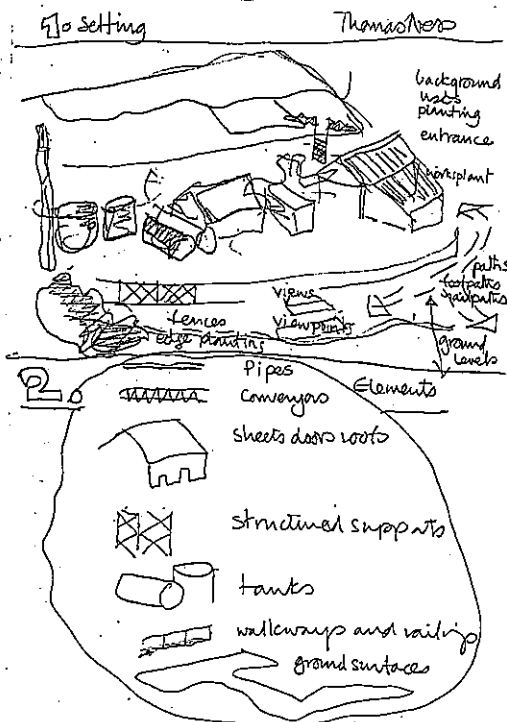 1. Setting
Thomas Ness
background
planting
entrance
works plant
paths
footpaths
views
viewpoints
fences
edge planting
ground
levels
2.
Elements
Pipes
conveyors
sheets doors roofs
structural supports
tanks
walkways and railings
ground surfaces